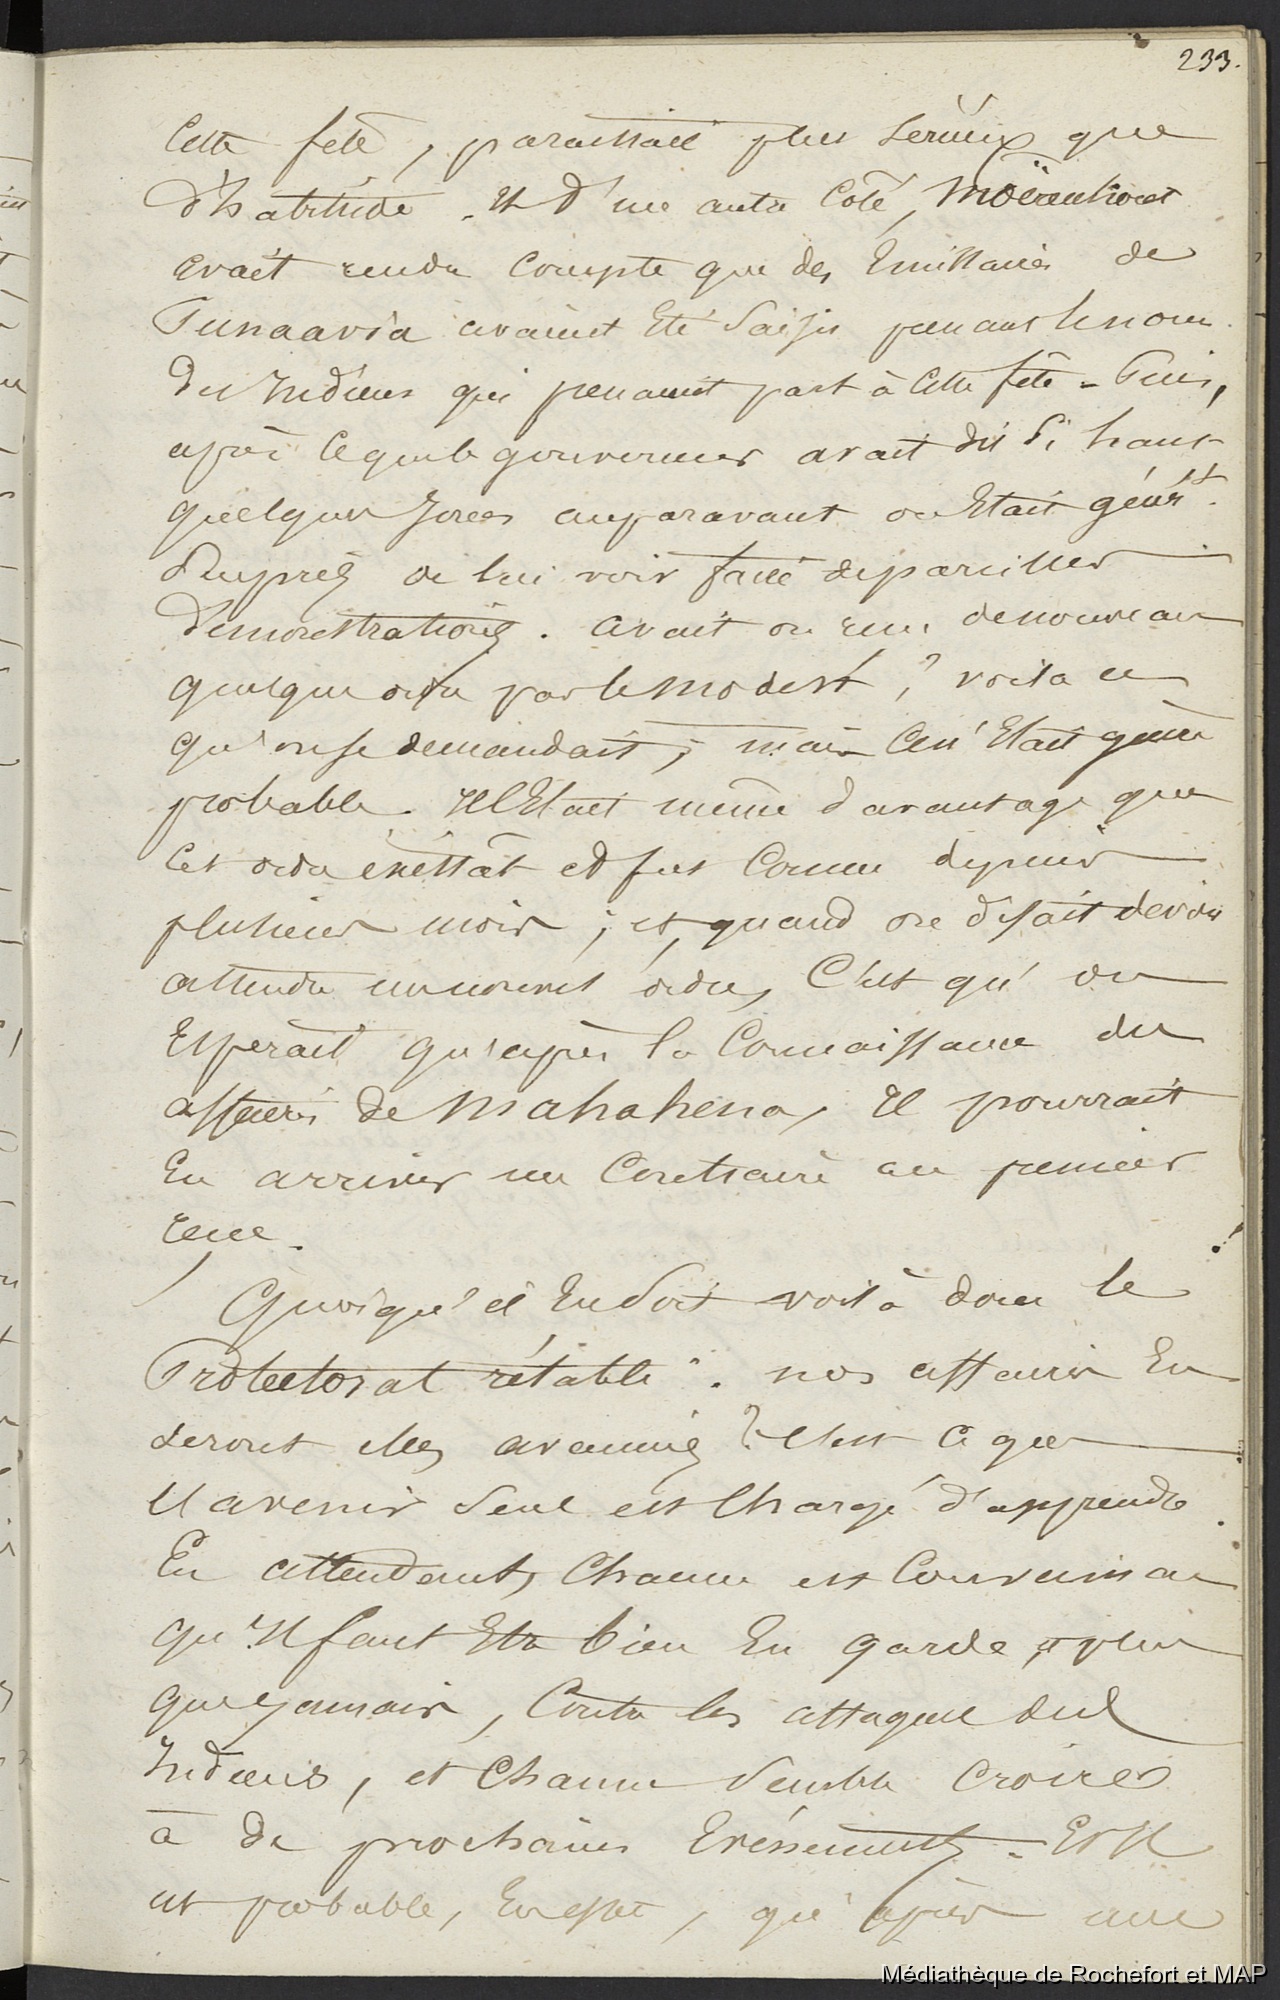 233.
Cette fete, paraissait plus serieux que
d'habitude. Et d'une autre Coté, Moërenhout
avait rendu Compte que des Emissaires de
Punaavia avaient Eté Saisis prenant le nom
des Indiens qui prenaient part à Cette fête - Puis,
après Ce que le gouverneur avait dit si haut
quelques Jours auparavant on Etait génért.
Surpris de lui voir faire de pareilles
démonstrations. avait on reçu de nouveau
quelque ordre par le modeste ? voila ce
qu'on se demandait ; mais Ce n'Etait guère
probable. Il Etait même davantage que
Cet ordre existât et fut Connu depuis
plusieurs mois ; et quand on disait devoir
attendre un nouvel ordre, C'est qu'on
Esperait qu'après la Connaissance des
affaires de Mahahena, Il pourrait
En arriver un Contraire au premier
reçu.
Quoiqu'il En Soit voilà donc le
Protectorat rétabli. nos affaires En
seront elles avancées ? C'est Ce que
l'avenir Seul est Chargé d'apprendre
En attendant, Chacun est Convaincu
qu'Il faut Etre bien En garde, et plus
que jamais, Contre les attaques des
Indiens, et Chacun Semble Croire
à de prochains Evénements. Et Il
est probable, En effet, qu'après une
Médiathèque de Rochefort et MAP